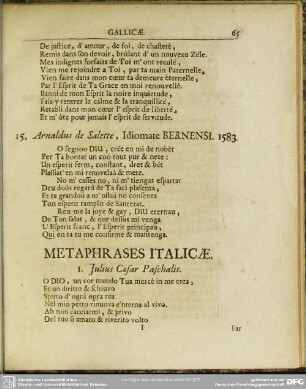 GALLICÆ. 65
De justice, d' amour, de foi, de chasteté,
Remis dans son devoir, brûlant d' un nouveau Zéle.
Mes indignes forfaits de Toi m'ont reculé,
Vien me rejoindre a Toi, par ta main Paternelle,
Vien faire dans mon cœur ta demeure éternelle,
Par l' Esprit de Ta Grace en moi renouvellé.
Banni de mon Esprit la noire inquietude,
Fais-y rentrer le cálme & la tranquillité,
Retabli dans mon cœur l' esprit de liberté,
Et m' ôte pour jamais l' esprit de servitude.
15. Arnaldus de Salette, Idiomate BERNENSI. 1583.
O segnoo DIU, crée en mi de nobèt
Per Ta bontat un coò tout pur & net:
Un esperit ferm, constant, dret & bèt
Plassiat' en mi renovelaà & metre.
No m' casses no, ni m' tiengas espartat
Deu doûs regarà de Ta faci plasenta,
Et ta grandoù a m' ostaà no consenta
Ton esperit ramplit de Santetat.
Ren-me la joye & gay, DIU eternau,
De Ton salut, & que dessus mi venga
L' Esperit franc, l' Esperit principau,
Qui en ta ta me confirme & mantenga.
METAPHRASES ITALICÆ.
1. Julius Cæsar Paschalis.
O DIO, un cor mundo Tua mercè in me crea,
Et un diritto & schiuvo
Spirto d' ogni opra rea
Nel mio petto rinuova e'terna al vivo.
Ah non cacciarmi, & privo
Del tuo sì amato & riverito volto
I Far